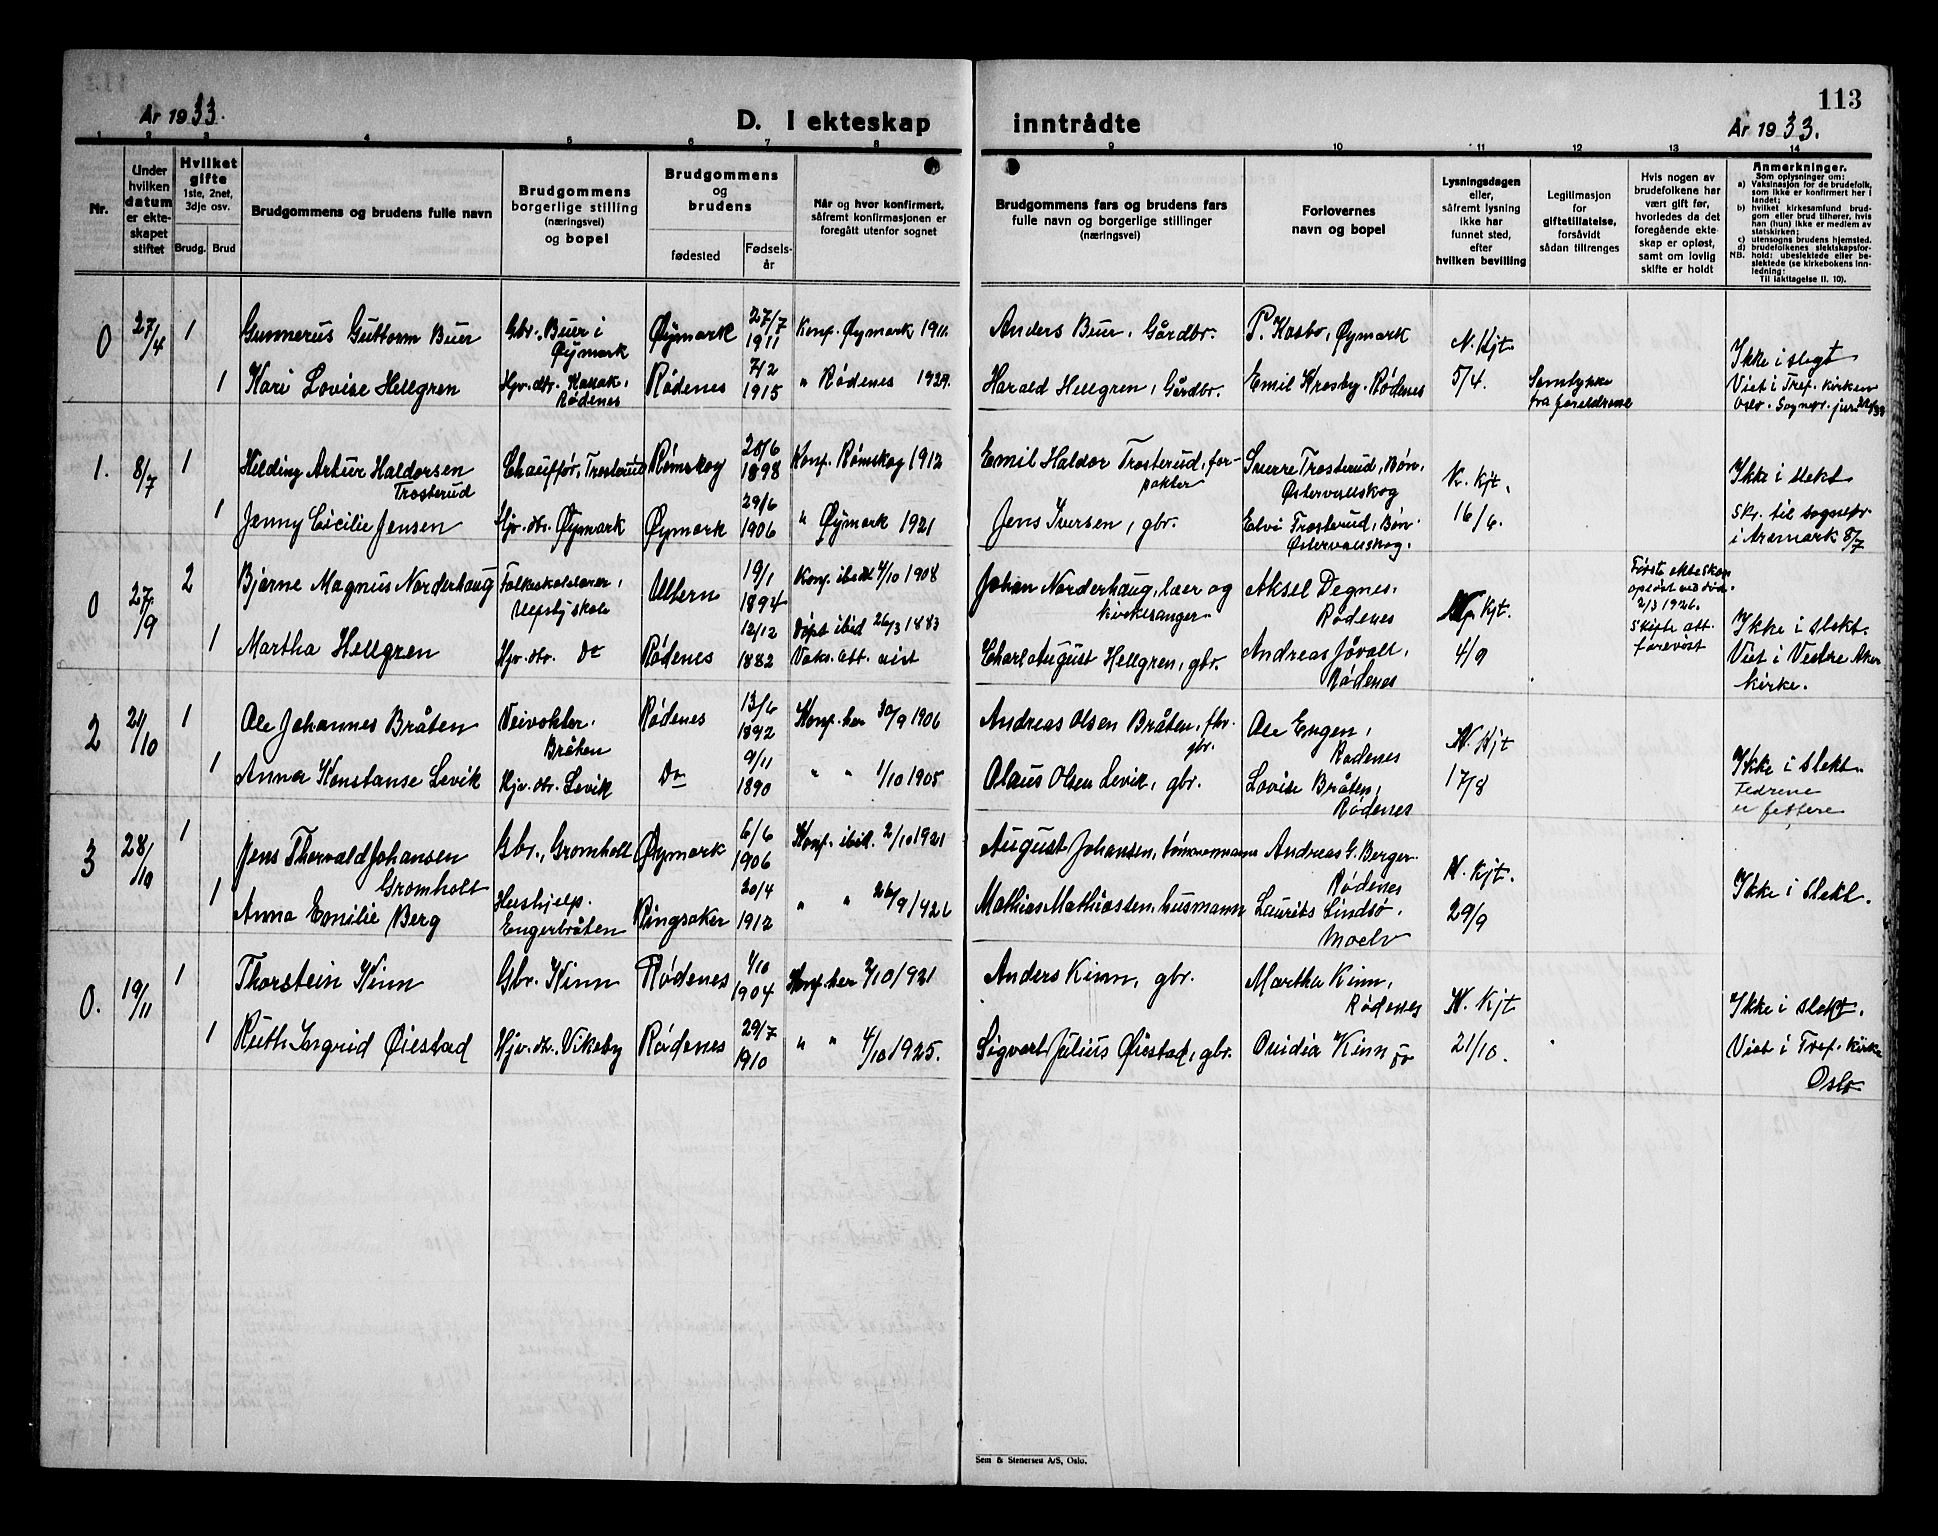 113
År 1933.
D. I ekteskap inntrådte
År 1933.
1 2 3 4 5 6 7 8 9 10 11 12 13 14
Nr.
Under
hvilken
datum
er ekte-
skapet
stiftet
Hvilket
gifte
1ste, 2net,
3dje osv.
Brudg. Brud
Brudgommens og brudens fulle navn
Brudgommens
borgerlige stilling
(næringsvei)
og bopel
Brudgommens
og
brudens
fødested
Fødsels-
år
Når og hvor konfirmert,
såfremt konfirmasjonen er
foregått utenfor sognet
Brudgommens fars og brudens fars
fulle navn og borgerlige stillinger
(næringsvei)
Forlovernes
navn og bopel
Lysningsdagen
eller,
såfremt lysning
ikke har
funnet sted,
efter
hvilken bevilling
Legitimasjon
for
giftetillatelse,
forsåvidt
sådan tiltrenges
Hvis nogen av
brudefolkene har
vært gift før,
hvorledes da det
foregående ekte-
skap er opløst,
samt om lovlig
skifte er holdt
Anmerkninger.
Som oplysninger om:
a) Vaksinasjon for de brudefolk,
som ikke er konfirmert her i
landet;
b) hvilket kirkesamfund brud-
gom eller brud tilhører, hvis
han (hun) ikke er medlem av
statskirken;
c) utensogns brudens hjemsted.
d) brudefolkenes slektskapsfor-
hold: ubeslektede eller be-
slektede (se kirkebokens inn-
ledning:
NB.
Til iakttagelse II. 10).
0 27/4 1 Gunnerus Guttorm Buer Gbr. Buer i Øymark Øymark 27/7 1911 Konf. Øymark 1911. Anders Buer, Gårdbr. P. Kasbo, Øymark N. Kjt
1 Kari Lovise Hellgren Hjv. dtr. Kasak, Rødenes Rødenes 7/2 1915 " Rødenes 1929. Harald Hellgren, Gårdbr. Emil Krosby, Rødenes 5/4. Samtykke fra foreldrene
Ikke i slegt
Viet i Tref. kirken
Oslo. Sognepr.
1. 8/7 1 Hilding Artur Haldorsen Trosterud Chauffør, Trosterud Rømskog 28/6 1898 Konf. Rømskog 1912 Emil Haldor Trosterud, forpakter Sverre Trosterud, Bøn, Østervallskog N. Kjt.
1 Jenny Cicilie Jensen Hjv. dtr. Øymark Øymark 29/6 1906 " Øymark 1921 Jens Iversen, gbr. Elvi Trosterud, Bøn. Østervallskog. 16/6.
Ikke i slekt
Skr. til sognepr.
i Aremark 8/7
0 27/9 2 Bjarne Magnus Norderhaug Folkeskolelærer, skole Ullern 19/1 1894 Konf. ibid 4/10 1908 Johan Norderhaug, lærer og kirkesanger Aksel Degnes, Rødenes N. Kjt.
Første ekteskap
opløst ved død
2/3 1926.
Skifte att.
forevist
1 Martha Hellgren Hjv. dtr. Do Rødenes 12/12 1882 Døpt ibid 26/3 1883 Vaks. att. vist Charl August Hellgren, gbr. Andreas Jåvall, Rødenes 4/9
Ikke i slekt.
Viet i Vestre Aker
kirke.
2 21/10 1 Ole Johannes Bråten Veivokter, Bråten Rødenes 13/6 1892 Konf. her 30/9 1906 Andreas Olsen Bråten, fhv. gbr. Ole Engen, Rødenes N. Kjt
1 Anna Konstanse Levik Hjv. dtr. Levik Do 9/11 1890 " " 1/10 1905 Olaus Olsen Levik, gbr. Lovise Bråten, Rødenes 17/8
Ikke i slekt.
Fedrene
er fettere
3 28/10 1 Jens Thorvald Johansen Gromholt Gbr., Gromholt Øymark 6/6 1906 Konf. ibid. 2/10 1921 August Johansen, tømmermann Andreas G. Berger Rødenes N. Kjt.
1 Anna Emilie Berg Hushjelp. Engerbråten Ringsaker 20/4 1912 " " 26/9 1926 Mathias Mathiassen, husmann Laurits Lindsø, Moelv 29/9
Ikke i slekt.
0. 19/11 1 Thorstein Kinn Gbr. Kinn Rødenes 4/10 1904 Konf. her 2/10 1921 Anders Kinn, gbr. Martha Kinn, Rødenes N. Kjt
1 Ruth Ingrid Øiestad Hjv. dtr., Vikeby Rødenes 29/7 1910 " " 4/10 1925. Sigvart Julius Øiestad, gbr. Ovidia Kinn Do 21/10.
Ikke i slekt.
Viet i Tref. kirke
Oslo
Sem & Stenersen A/S, Oslo.